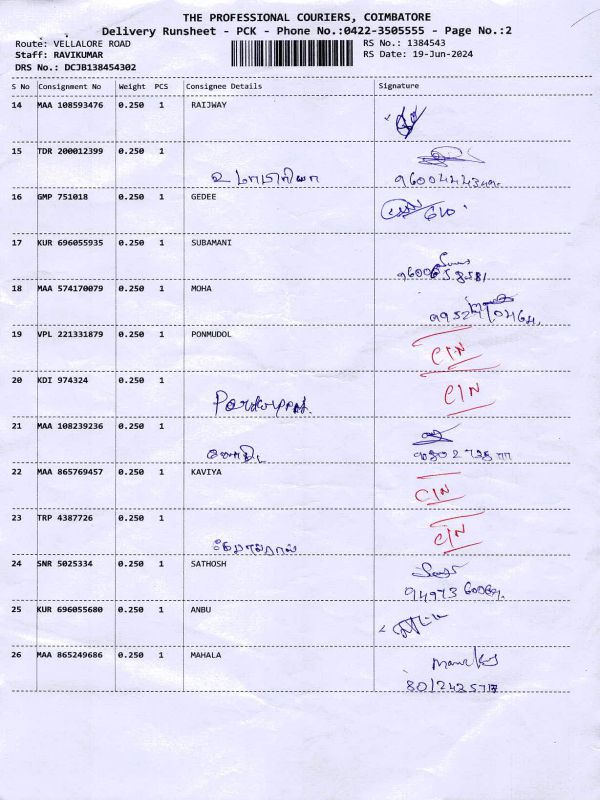 THE PROFESSIONAL COURIERS, COIMBATORE
Delivery Runsheet - PCK - Phone No.:0422-3505555 - Page No.:2
Route: VELLALORE ROAD RS No.: 1384543
Staff: RAVIKUMAR RS Date: 19-Jun-2024
DRS No.: DCJB138454302
S No Consignment No Weight PCS Consignee Details Signature
14 MAA 108593476 0.250 1 RAIJWAY
15 TDR 200012399 0.250 1
16 GMP 751018 0.250 1 GEDEE
17 KUR 696055935 0.250 1 SUBAMANI
18 MAA 574170079 0.250 1 MOHA
19 VPL 221331879 0.250 1 PONMUDOL
CIN
20 KDI 974324 0.250 1
CIN
21 MAA 108239236 0.250 1
22 MAA 865769457 0.250 1 KAVIYA
CIN
23 TRP 4387726 0.250 1
CIN
24 SNR 5025334 0.250 1 SATHOSH
25 KUR 696055680 0.250 1 ANBU
26 MAA 865249686 0.250 1 MAHALA